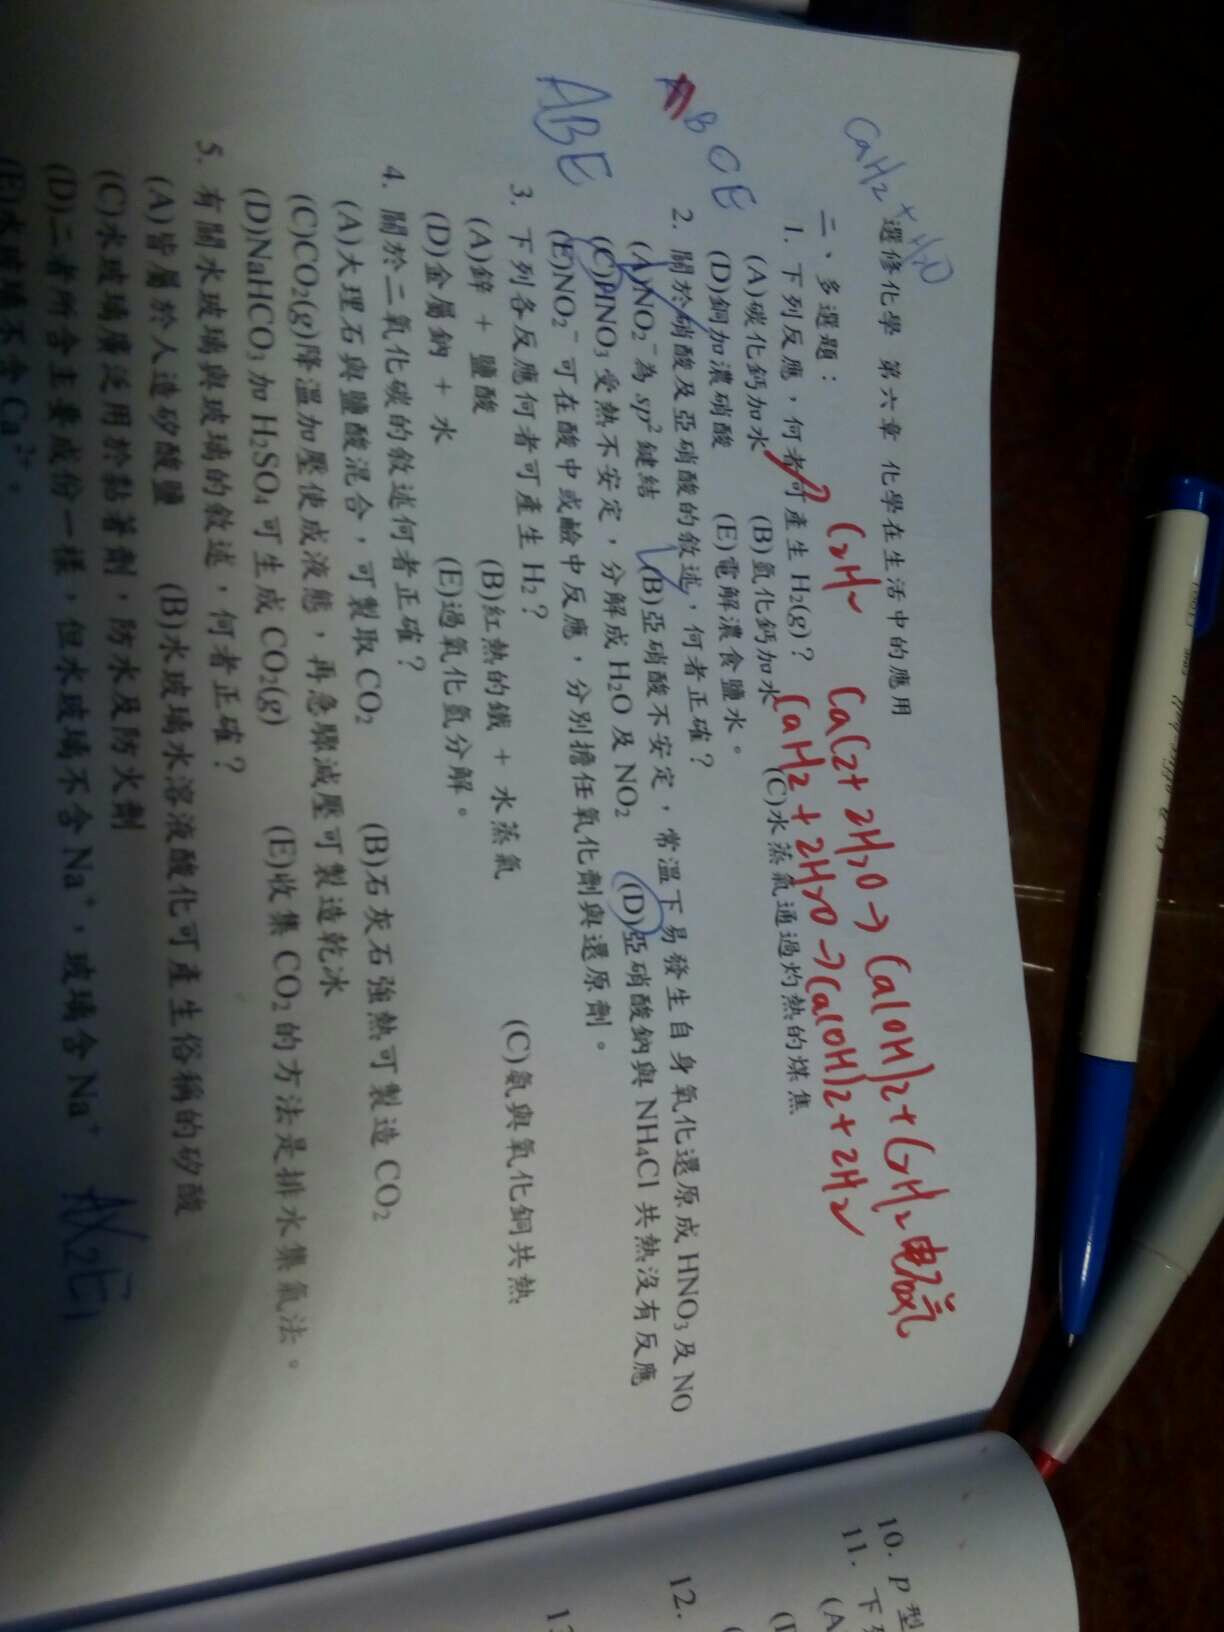 CaH2 + H2O
選修化學 第六章 化學在生活中的應用
C2H2 CaC2 + 2H2O → Ca(OH)2 + C2H2 电石气
二、多選題：
CaH2 + 2H2O → Ca(OH)2 + 2H2
BCE
1. 下列反應，何者可產生 H2(g)？
(A)碳化鈣加水 (B)氫化鈣加水 (C)水蒸氣通過灼熱的煤焦
(D)銅加濃硝酸 (E)電解濃食鹽水。
ABE
2. 關於硝酸及亞硝酸的敘述，何者正確？
(A)NO2⁻為 sp² 鍵結 (B)亞硝酸不安定，常溫下易發生自身氧化還原成 HNO3 及 NO
(C)HNO3 受熱不安定，分解成 H2O 及 NO2 (D)亞硝酸鈉與 NH4Cl 共熱沒有反應
(E)NO2⁻ 可在酸中或鹼中反應，分別擔任氧化劑與還原劑。
3. 下列各反應何者可產生 H2？
(A)鋅 + 鹽酸 (B)紅熱的鐵 + 水蒸氣 (C)氨與氧化銅共熱
(D)金屬鈉 + 水 (E)過氧化氫分解。
4. 關於二氧化碳的敘述何者正確？
(A)大理石與鹽酸混合，可製取 CO2 (B)石灰石強熱可製造 CO2
(C)CO2(g)降溫加壓使成液態，再急驟減壓可製造乾冰
(D)NaHCO3 加 H2SO4 可生成 CO2(g) (E)收集 CO2 的方法是排水集氣法。
5. 有關水玻璃與玻璃的敘述，何者正確？
(A)皆屬於人造矽酸鹽 (B)水玻璃水溶液酸化可產生俗稱的矽酸
(C)水玻璃廣泛用於黏著劑，防水及防火劑
(D)二者所含主要成份一樣，但水玻璃不含 Na⁺，玻璃含 Na⁺
(E)水玻璃不含 Ca²⁺。
10. P 型
11. 下
(A
12.